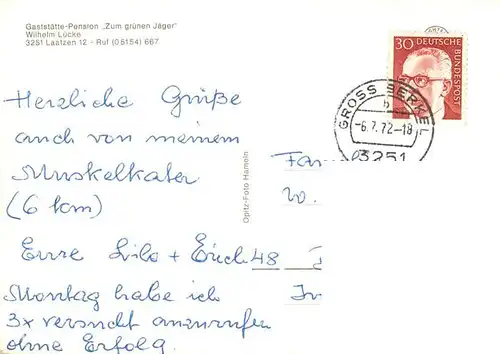 Gaststätte-Pension „Zum grünen Jäger"
Wilhelm Lücke
3251 Laatzen 12 - Ruf (05154) 667
30 DEUTSCHE BUNDESPOST
GROSS BERKEL
b
-6.7.72-18
3251
Herzliche Grüße
auch von meinem
Muskelkater
(6 km)
Eure Lilo + Erich
Montag habe ich
3x versucht anzurufen
ohne Erfolg.
Opitz-Foto Hameln
Fam
W.
48